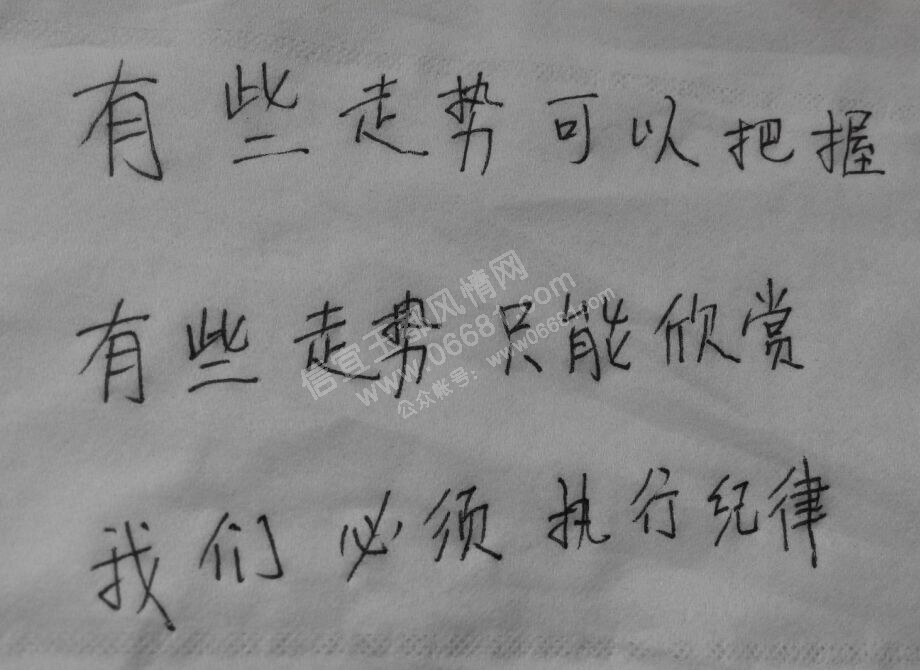 有些走势可以把握
有些走势只能欣赏
信宜玉都风情网
www.06681.com
公众帐号：www06681com
我们必须执行纪律